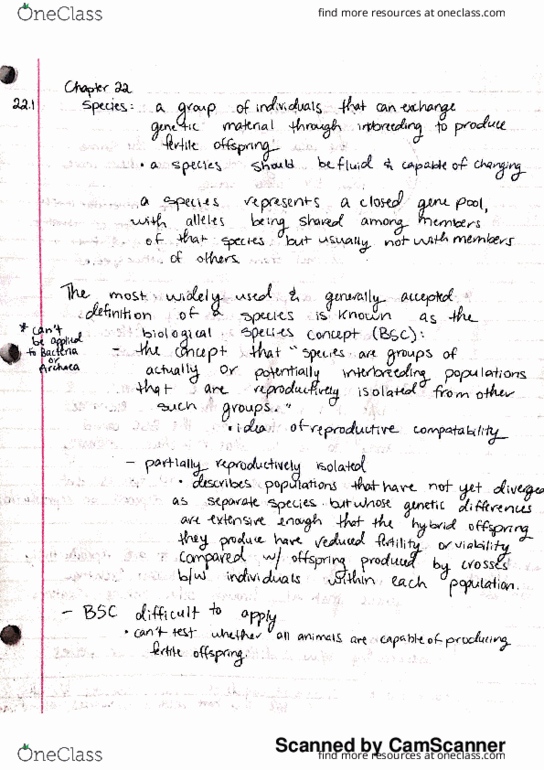 OneClass
find more resources at oneclass.com
Chapter 22
22.1
Species: a group of individuals that can exchange
genetic material through inbreeding to produce
fertile offspring.
• a species should be fluid & capable of changing
a species represents a closed gene pool,
with alleles being shared among members
of that species but usually not with members
of others.
The most widely used & generally accepted
definition of a species is known as the
biological species concept (BSC):
* can't
be applied
to Bacteria
or
Archaea
- the concept that "species are groups of
actually or potentially interbreeding populations
that are reproductively isolated from other
such groups."
• idea of reproductive compatability
- partially reproductively isolated
• describes populations that have not yet diverged
as separate species but whose genetic differences
are extensive enough that the hybrid offspring
they produce have reduced fertility or viability
compared w/ offspring produced by crosses
b/w individuals within each population.
- BSC difficult to apply
• can't test whether all animals are capable of producing
fertile offspring.
Scanned by CamScanner
OneClass
find more resources at oneclass.com